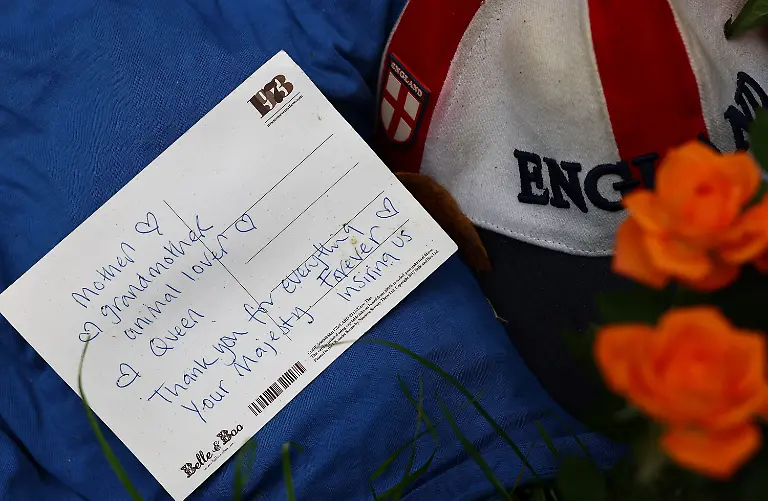 1973
Mother ♡
♡ grandmother
animal lover ♡
♡ Queen
Thank you for everything ♡
Your Majesty Forever
insiring us
Belle & Boo
ENGLAND
ENGLAND